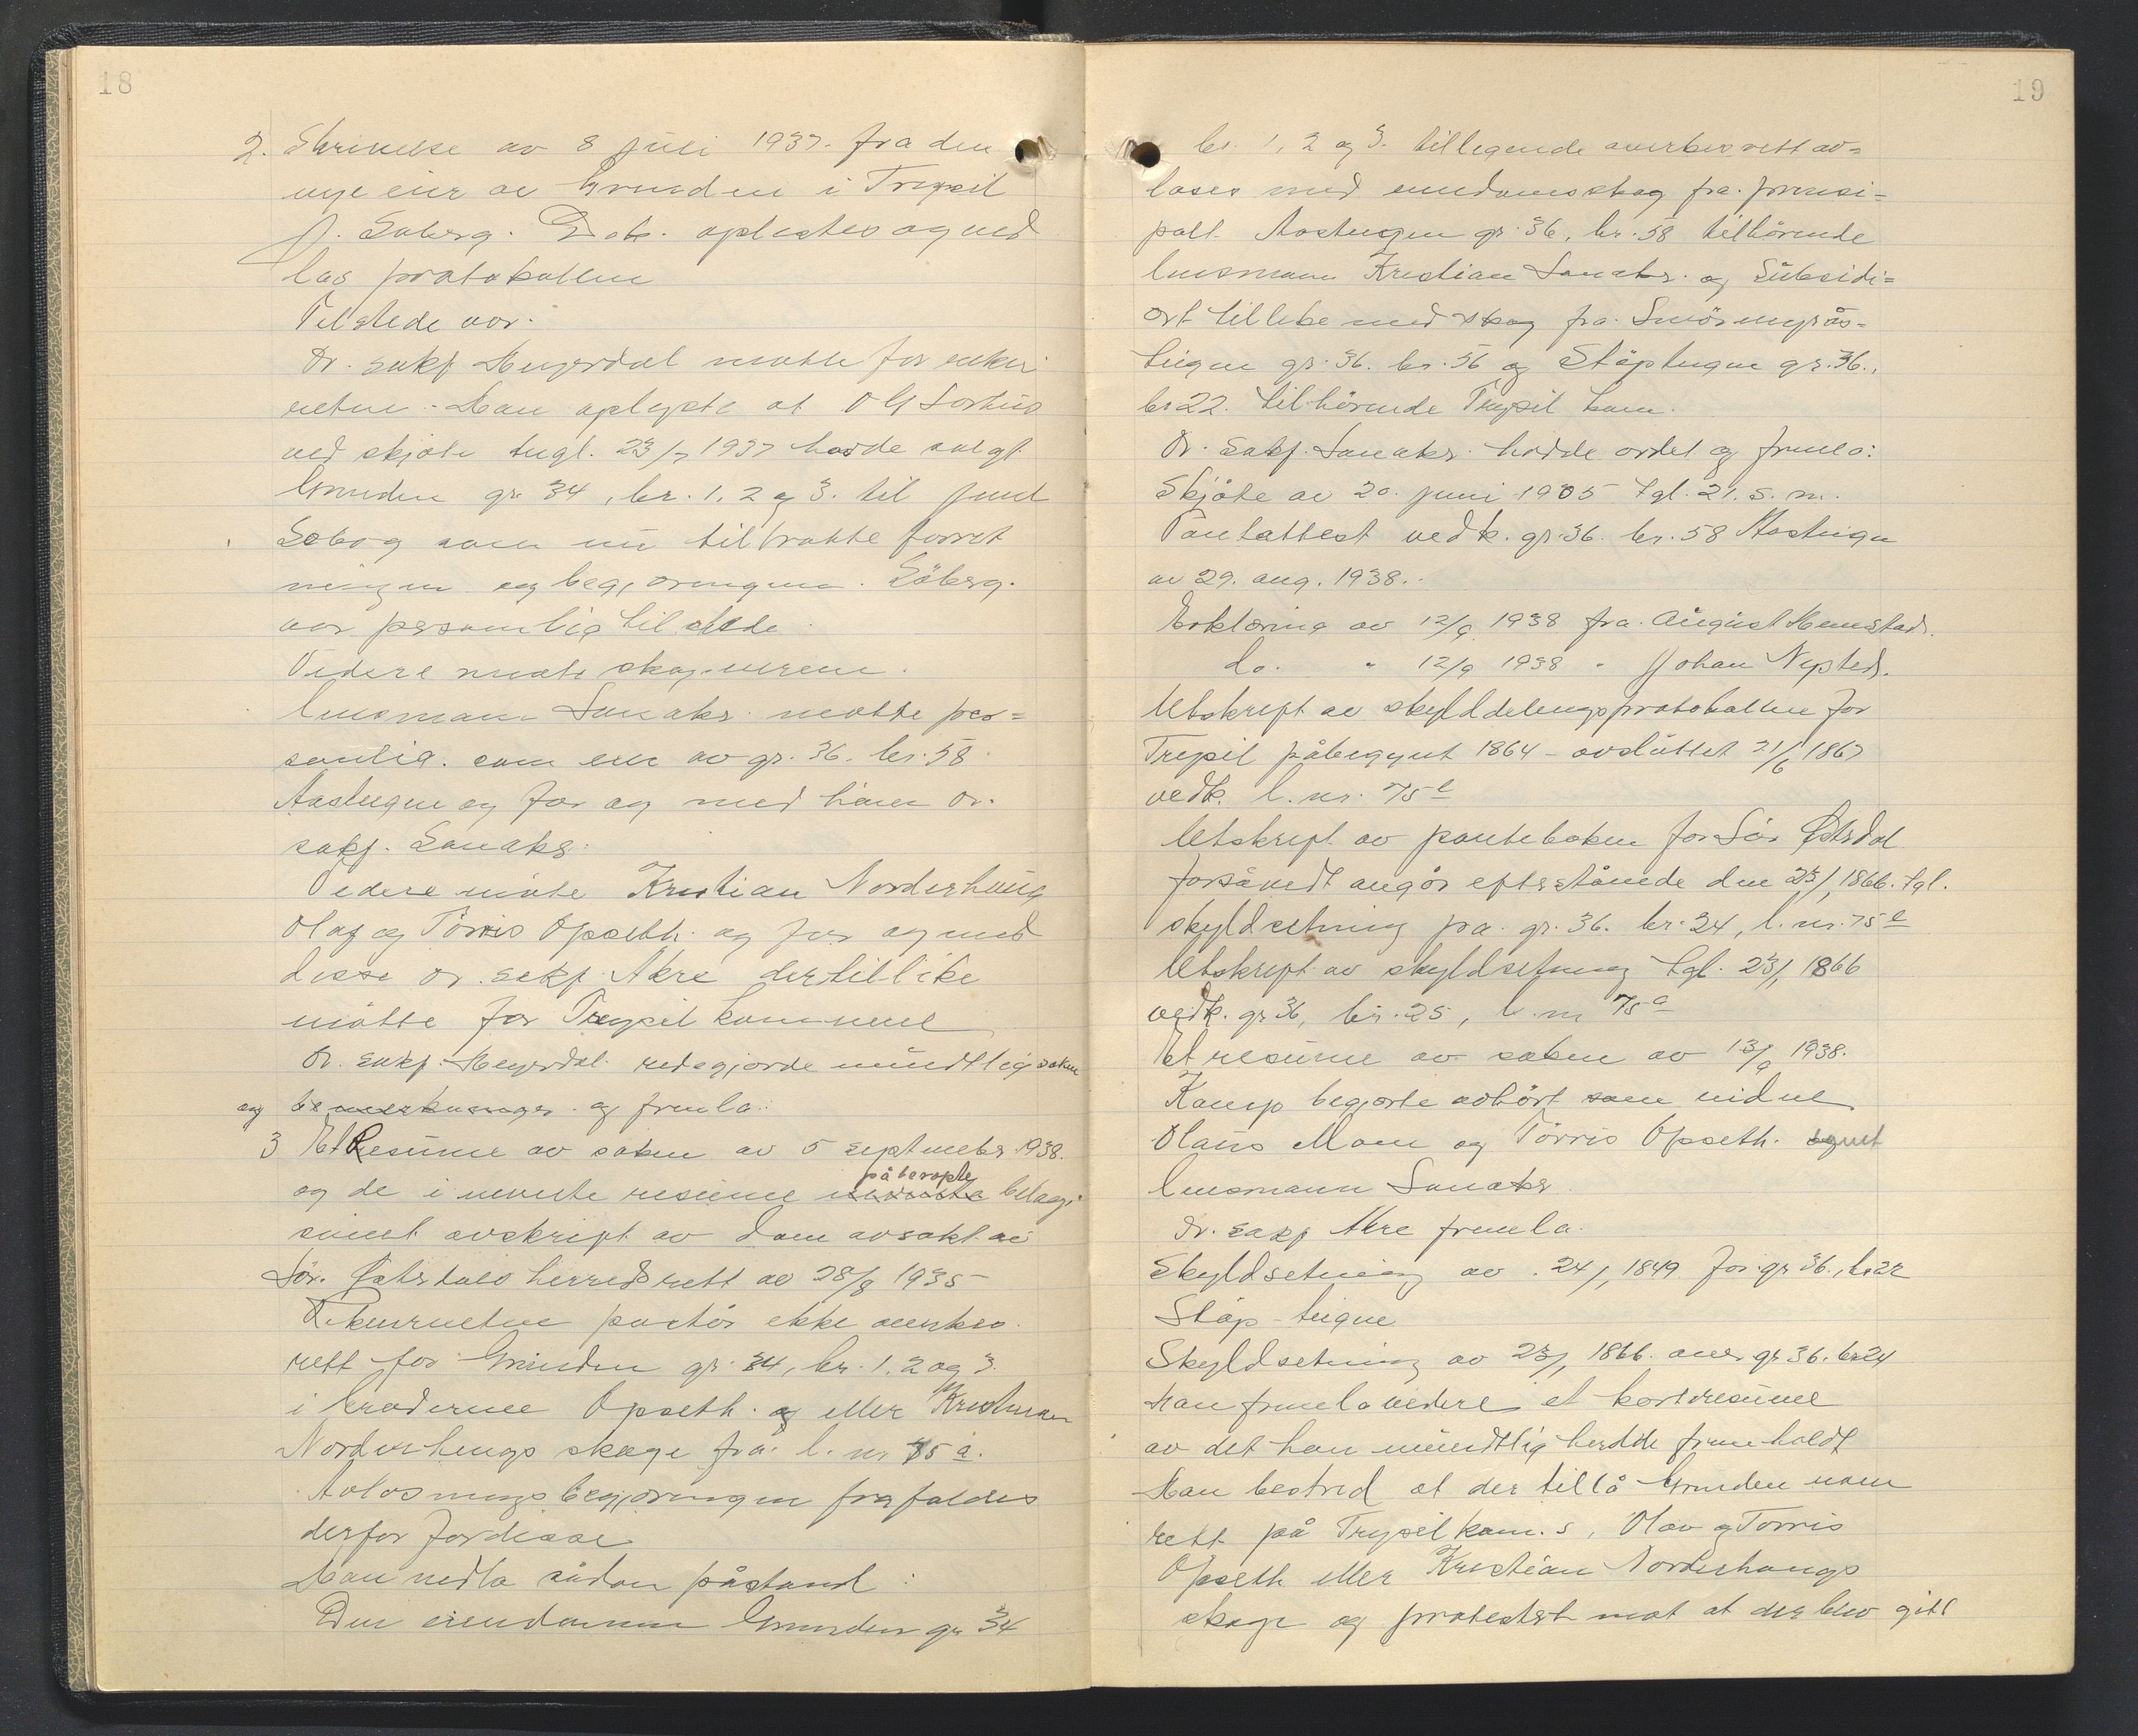 18
2. Skrivelse av 8 juli 1937. fra den
nye eier av Grunden i Trysil
J. Søberg. Dok. oplestes og ved
las protokollen
Tilstede var.
Or. sakf. Meyerdal møtte for rekvi
rentene. Han oplyste at
ved skjøte tngl. 23/7 1937 hadde solgt
Grunden gr. 34, br. 1, 2 og 3. til
Søberg som nu tiltrætte forret
ningen og begjæringene. Søberg.
var personlig tilstede.
Videre møtte skogeierene.
lensmann Sanaker møtte per=
sonlig. som eier av gr. 36. br. 58
Aasteigen og for og med ham or.
sakf. Sanaker.
Videre møtte Kristian Norderhaug
Olaf og Tørris Opseth. og for og med
disse or. sakf. Akre der tillike
møtte for Trysil kommune
Or. sakf. Meyerdal. redegjorde mundtlig saken
og bemerkninger. og fremla:
3 Et Resume av saken av 5 septmeber 1938.
og de i nevnte resume nevnte påberopte bilag,
samt avskrift av dom avsakt av
Sør. Østerdals herredsrett av 28/8 1935
Rekvirentene påstår ikke anerkev
rett for Grunden gr. 34, br. 1. 2 og 3.
i brødrene Opseth. og eller Kristian
Norderhaugs skoge fra l. nr 75 a.
Avløsningsbegjæringen frafaldes
derfor for disse
Han nedla sådan påstand:
Den eiendommen Grunden gr 34
19
br. 1, 2 og 3. tillegende averkesrett av=
løses med eiendomsskog fra. prinsi=
palt. Aasteigen gr. 36, br. 58 tilhørende
lensmann Kristian Sanaker. og Subsidi=
ært tillike med skog fra. Smørmyrås=
teigen gr. 36. br. 56 og Støpteigen gr. 36.,
br 22. tilhørende Trysil kom.
Or. Sakf. Sanaker. hadde ordet og fremla:
Skjøte av 20. juni 1905 tgl. 21. s. m.
Pantattest vedk. gr. 36. br. 58 Aasteigen
av 29. aug. 1938.
Erklæring av 12/9 1938 fra. August Nemstad.
do. " 12/9 1938 " Johan Nysted.
Utskrift av skylddelingsprotokollen for
Trysil påbegynt 1864 - avsluttet 21/6 1867
vedk. l. nr. 75 e
Utskrift av panteboken for Sør Østrdal
forsåvidt angår efterstående den 23/1 1866. tgl.
skyldsetning pa. gr. 36. br. 24, l. nr. 75 e
Utskrift av skyldsetning tgl. 23/1 1866
vedk. gr 36, br. 25, l. nr 75 a
Et resume av saken av 13/9 1938.
Kamp begjærte avhørt som vidne
Olaus Moen og Tørris Opseth. samt
lensmann Sanaker
Or. sakf Akre fremla.
Skyldsetning av 24/1 1849 for gr 36., br 22
Støp-teigen
Skyldsetning av 23/1 1866. over gr. 36. br 24
Han fremla videre et kort resume
av det han mundtlig hadde fremholdt
Han bestred at der tillå Grunden noen
rett på Trysil kom.s, Olav og Torris
Opseth eller Kristian Norderhaugs
skoge og protestert mot at der blev gitt